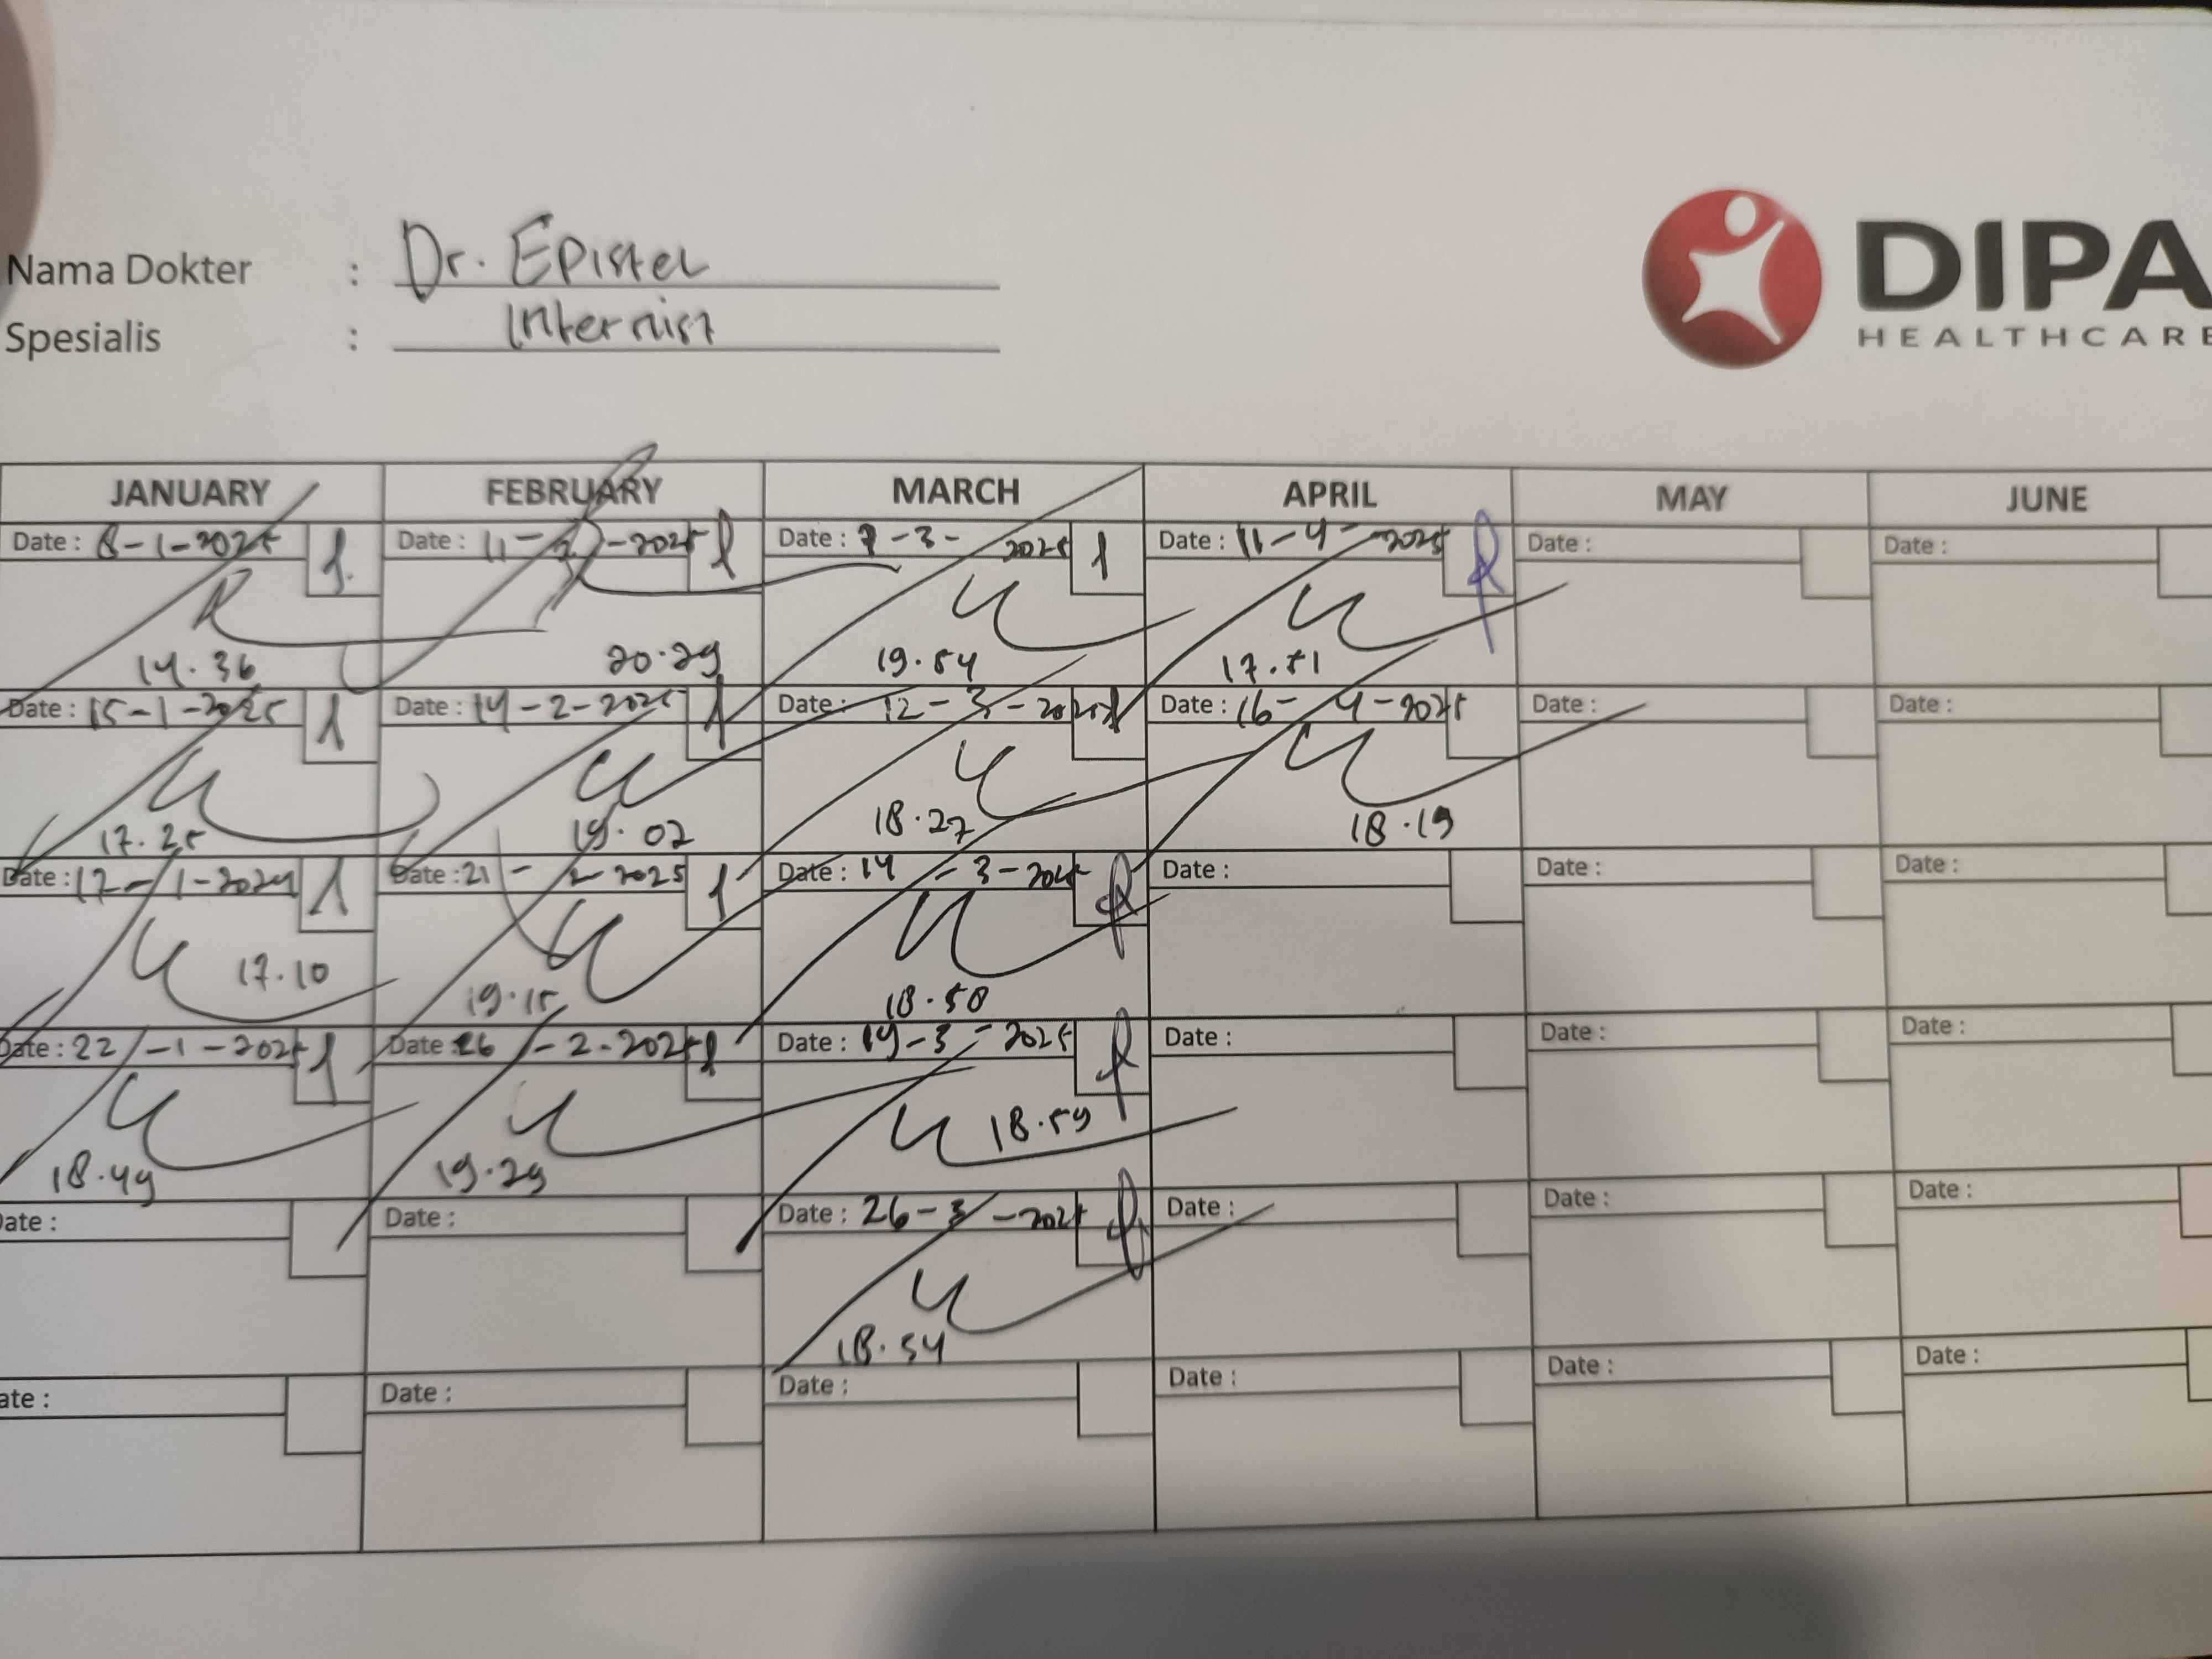 Nama Dokter : Dr. Epistel
Spesialis : Internist
DIPA
HEALTHCARE
JANUARY FEBRUARY MARCH APRIL MAY JUNE
Date : 8-1-2025 Date : 11-2-2025 Date : 7-3-2025 Date : 11-4-2025 Date : Date :
14.36 20.29 19.54 17.51
Date : 15-1-2025 Date : 14-2-2025 Date : 12-3-2025 Date : 16-4-2025 Date : Date :
17.25 19.02 18.27 18.19
Date : 17-1-2024 Date : 21-2-2025 Date : 14-3-2025 Date : Date : Date :
17.10 19.15 18.50
Date : 22-1-2025 Date 26-2-2025 Date : 19-3-2025 Date : Date : Date :
18.49 19.29 18.59
Date : Date : Date : 26-3-2025 Date : Date : Date :
18.54
ate : Date : Date : Date : Date : Date :